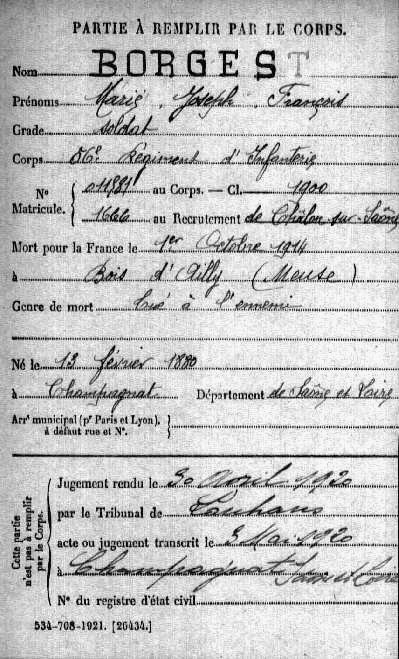 PARTIE À REMPLIR PAR LE CORPS.
Nom BORGEST
Prénoms Marie, Joseph, François
Grade soldat
Corps 56e Régiment d'Infanterie
No Matricule. 011981 au Corps. — Cl. 1900
1666 au Recrutement de Châlon-sur-Saône
Mort pour la France le 1er Octobre 1914
à Bois d'Ailly (Meuse)
Genre de mort tué à l'ennemi
Né le 13 février 1880
à Champagnat Département de Saône et Loire
Arrt municipal (pr Paris et Lyon), à défaut rue et No.
Cette partie n'est pas à remplir par le Corps.
Jugement rendu le 30 Avril 1920
par le Tribunal de Louhans
acte ou jugement transcrit le Mai 1920
à Champagnat Saône et Loire
No du registre d'état civil
534-708-1921. [26434.]